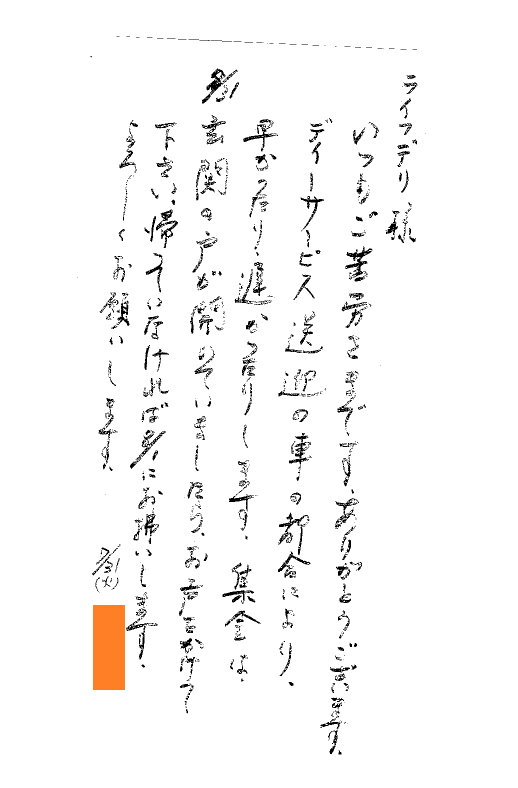 ライフデリ様
いつもご苦労さまです、ありがとうございます。
デイーサービス送迎の車の都合により、
早かったり、遅かったりします、集金は、
玄関の戸が開いていましたら、お声をかけて
下さい、帰っていなければ
にお払いします、
よろしくお願いします、
(火)